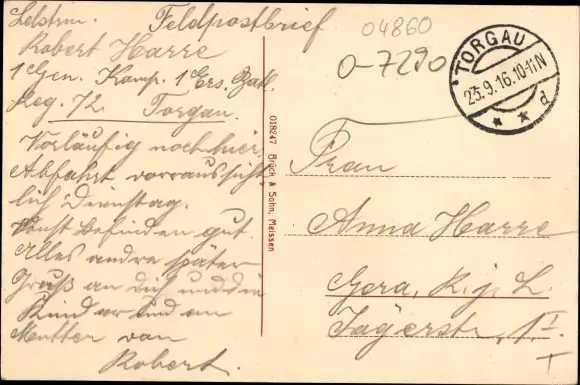 Feldpostbrief
Robert Harre
1 Gen. Komp. 1 Ers. Batl.
Reg. 72. Torgau.
Vorläufig noch hier,
Abfahrt vorraussicht
lich Dienstag.
Sonst befinden gut.
Alles andre später
Gruß an Dich und die
Kinder und an
Mutter von
Robert.
018247 Brück & Sohn, Meissen
04860
0-7290
TORGAU
23.9.16.10-11N
* * d
Frau
Anna Harre
Gera, R. j. L.
Jägerstr. 1 I